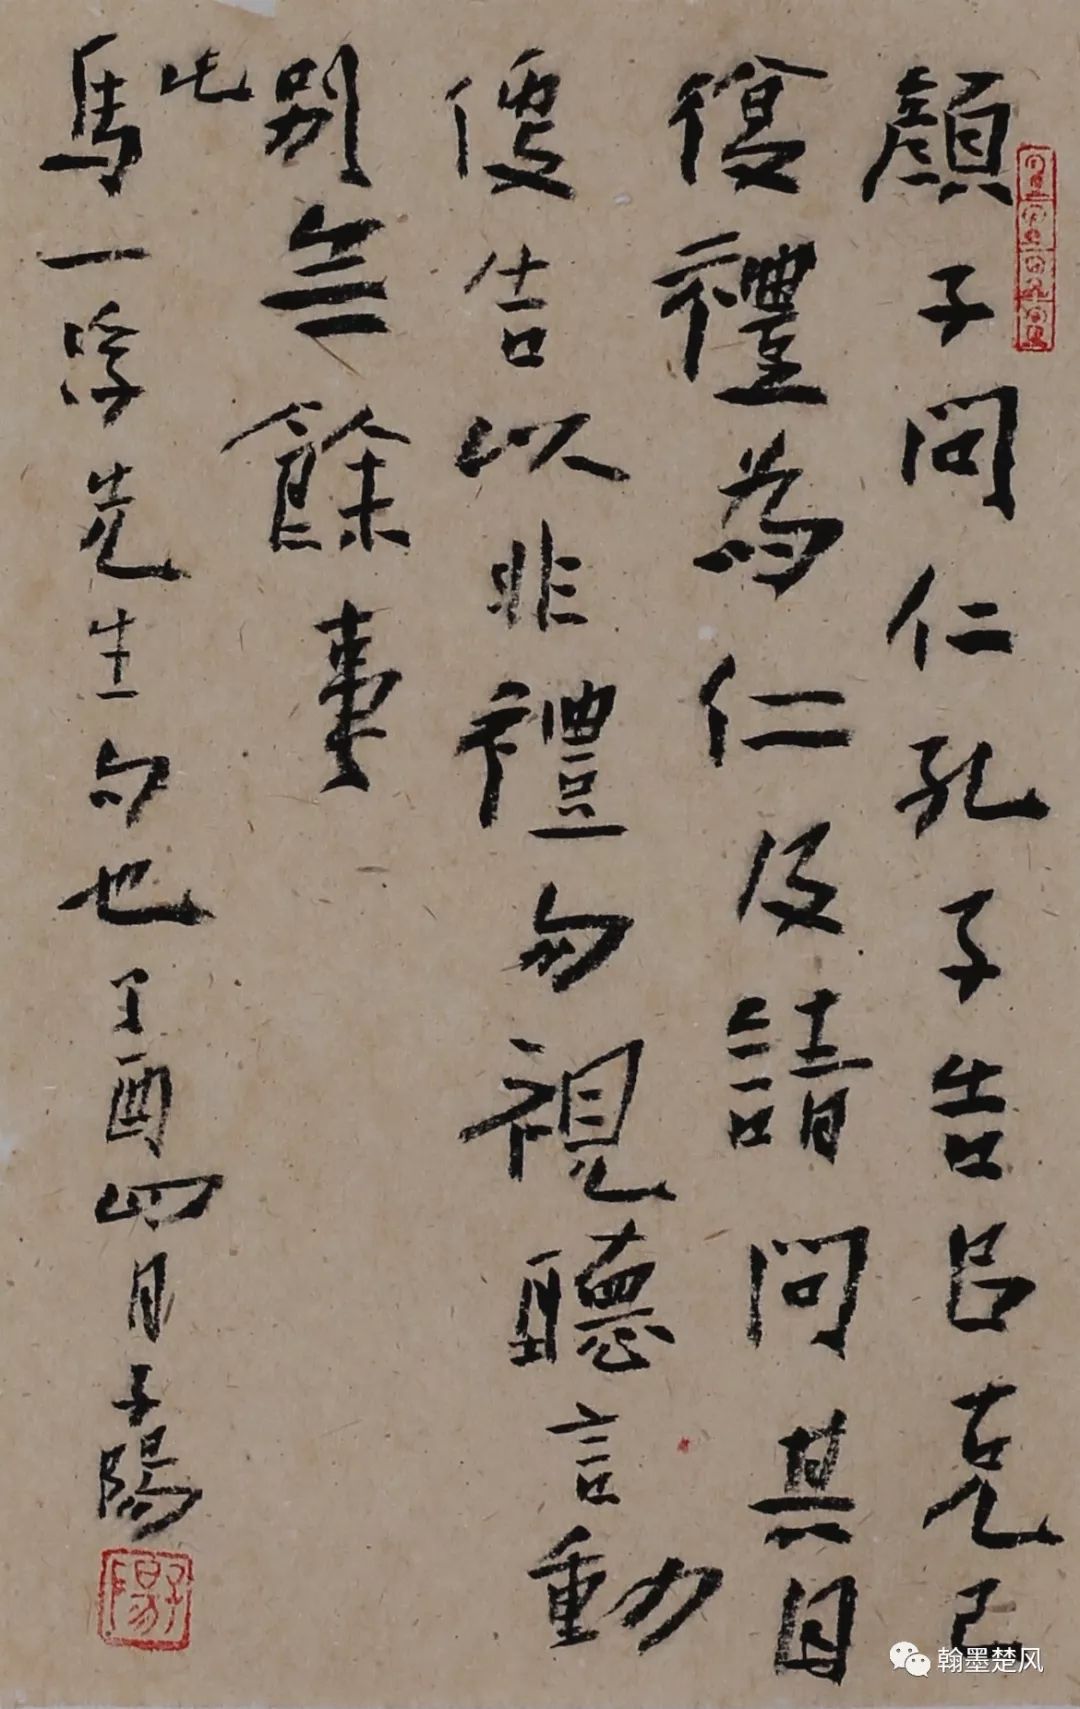 顔子問仁孔子告㠯克己
復禮為仁及請問其目
便告以非禮勿視聽言動
别無餘事
此
馬一浮先生句也丁酉四月子陽
子陽
翰墨楚风